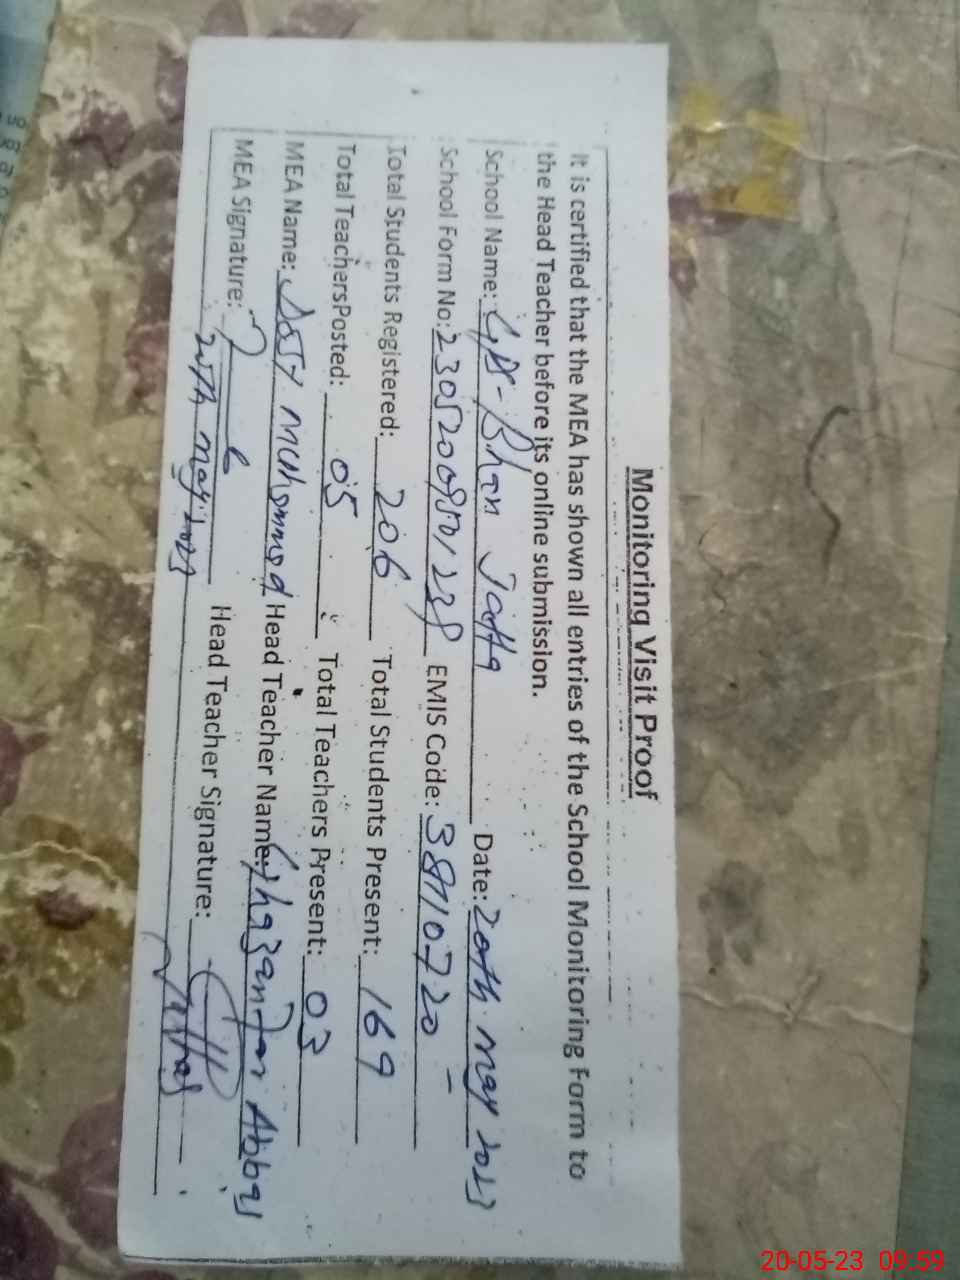 Monitoring Visit Proof
It is certified that the MEA has shown all entries of the School Monitoring Form to
the Head Teacher before its online submission.
School Name: GPS-Bhan Jatta Date: 20th may 2023
School Form No: EMIS Code: 38110720
Total Students Registered: 206 Total Students Present: 169
Total TeachersPosted: 05 Total Teachers Present: 03
MEA Name: Muhammad Head Teacher Name: Ghazanfar Abbas
MEA Signature: Head Teacher Signature:
20th may 2023
20-05-23 09.59